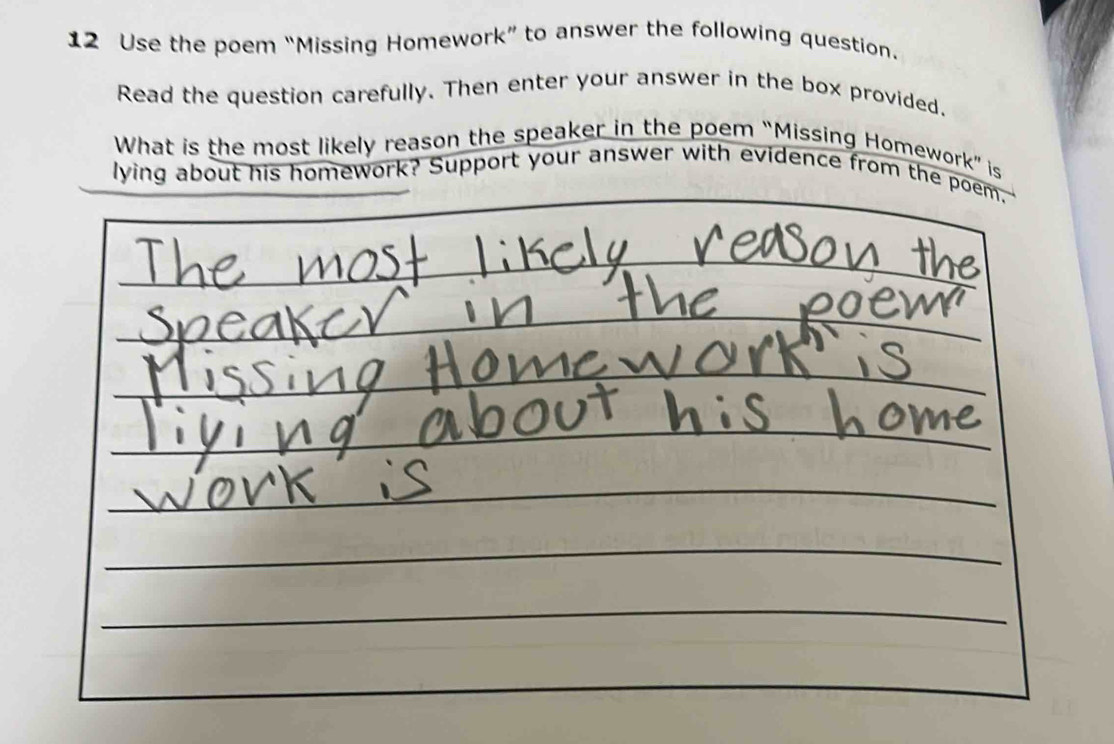 12 Use the poem “Missing Homework” to answer the following question.
Read the question carefully. Then enter your answer in the box provided.
What is the most likely reason the speaker in the poem “Missing Homework” is
lying about his homework? Support your answer with evidence from the poem.
The most likely reason the
speaker in the poem"
Missing Homework" is
liying about his home
work is